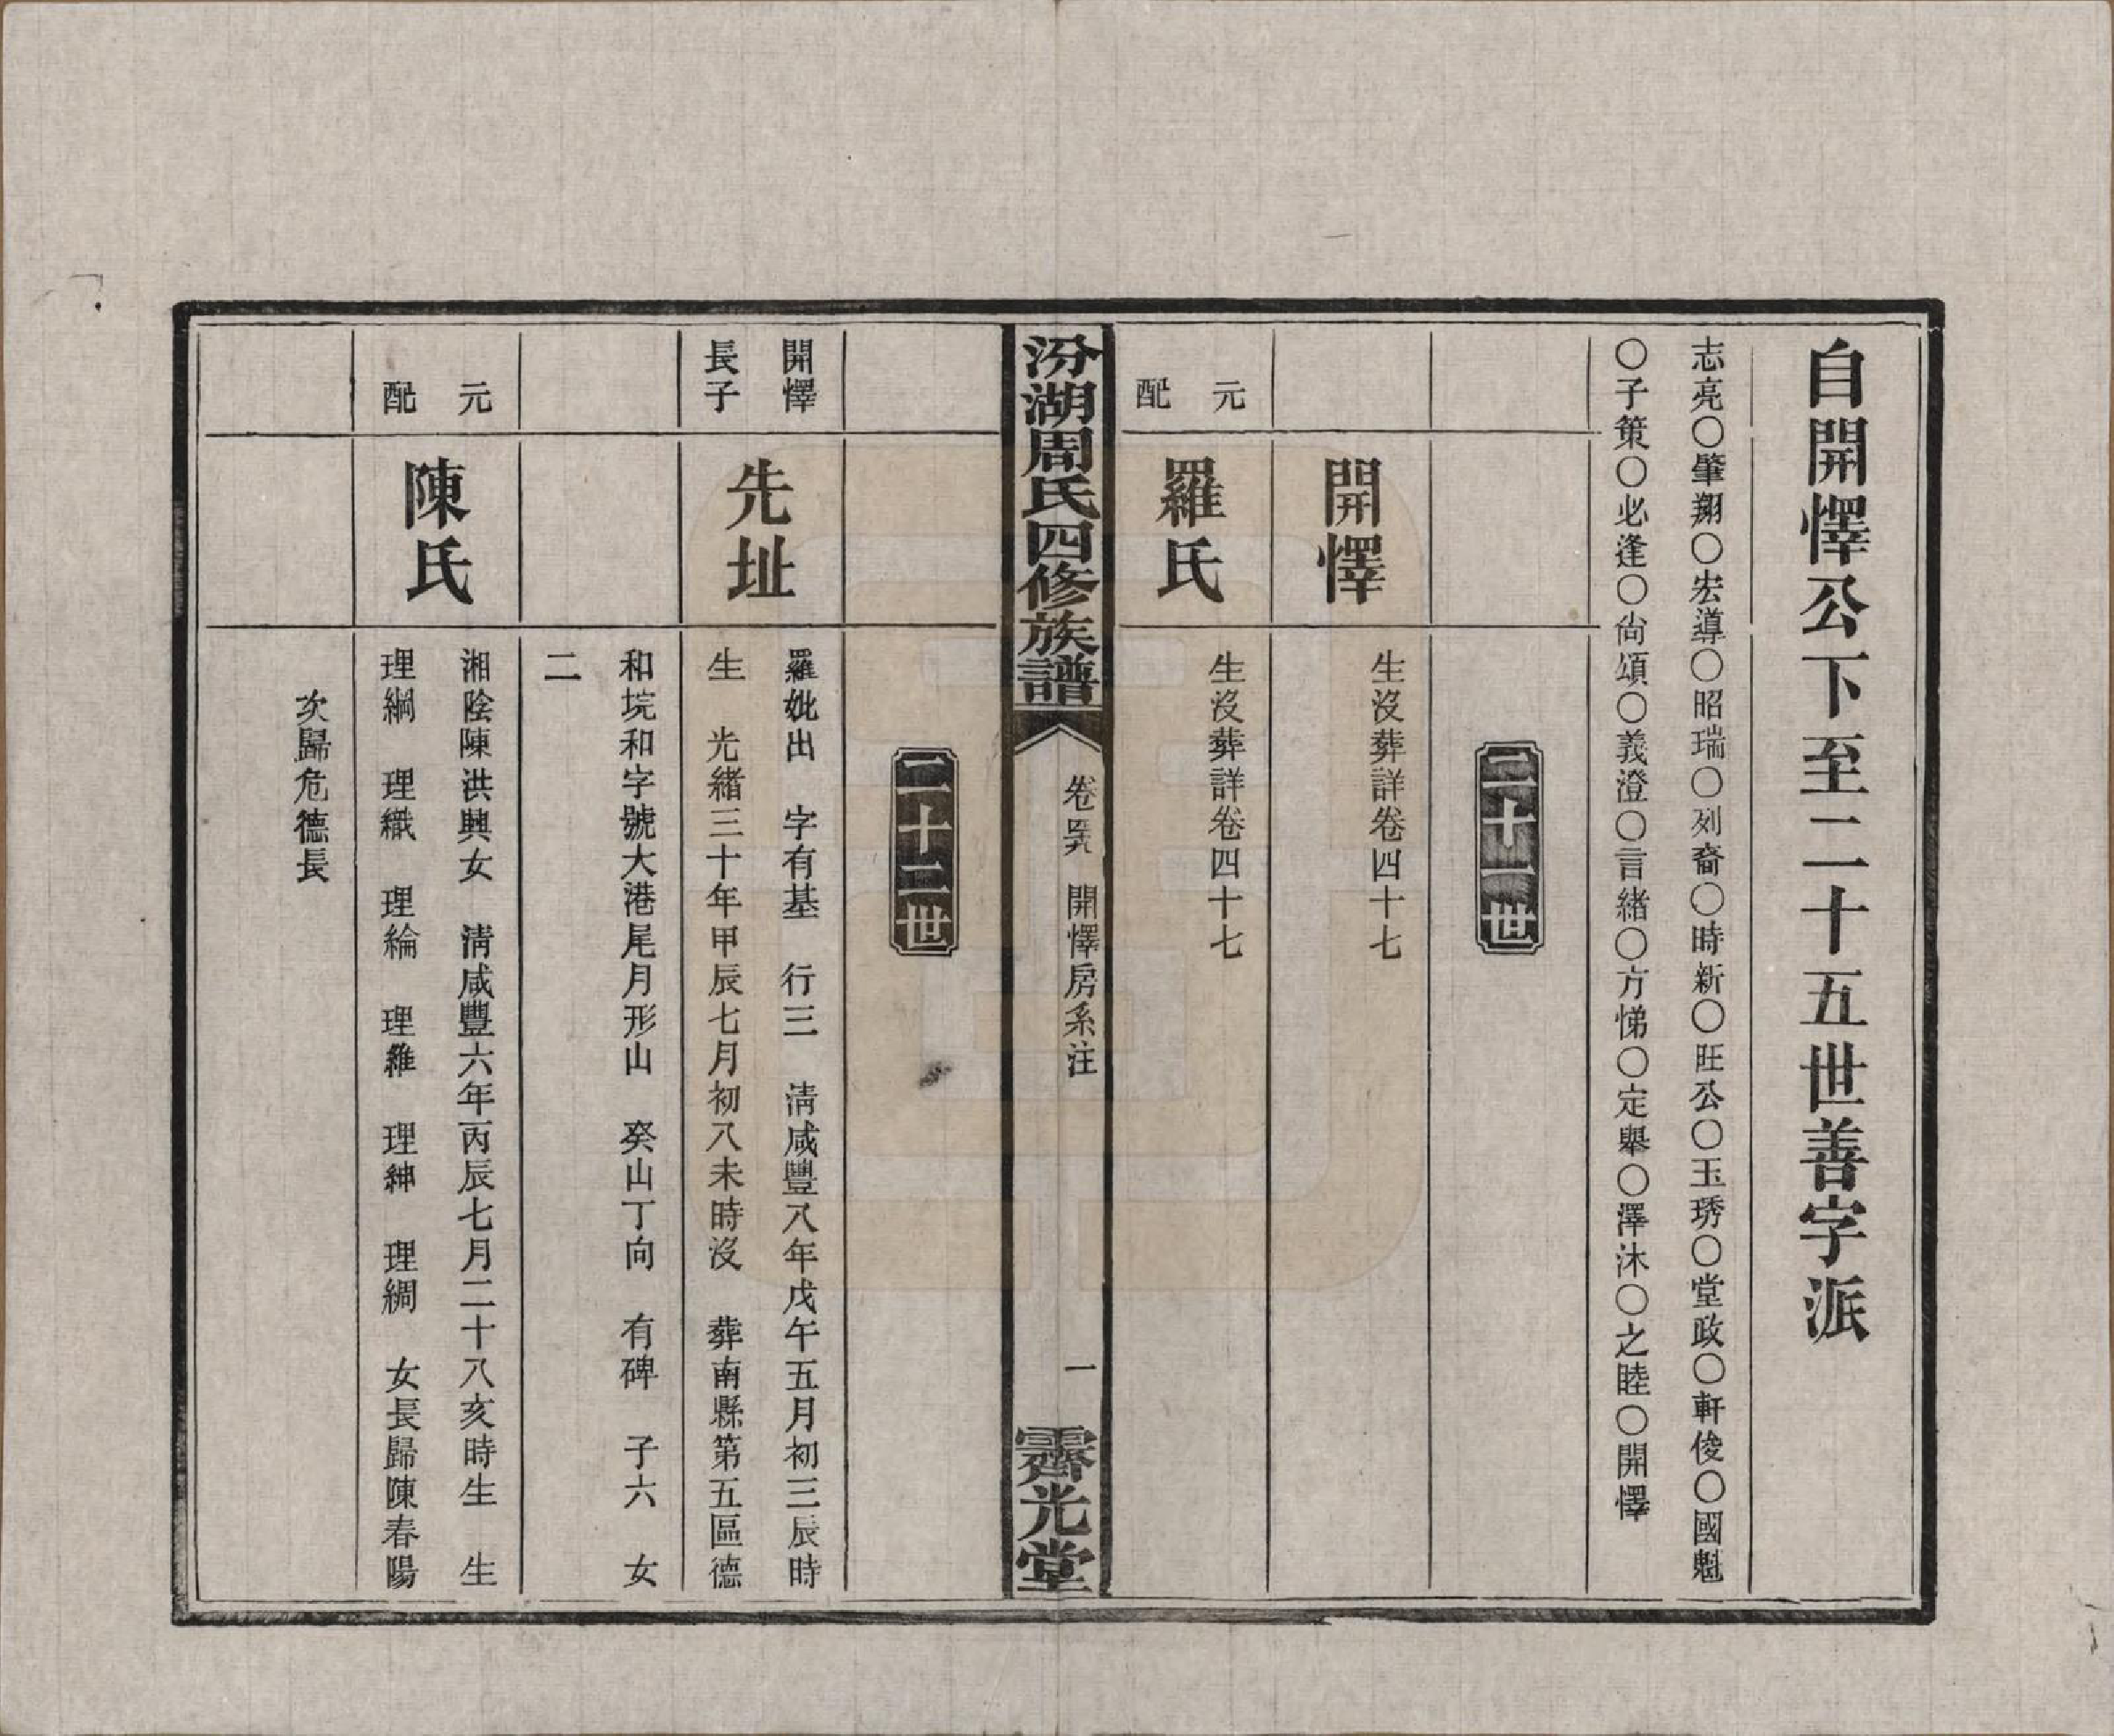 自開懌公下至二十五世善字派
志亮〇肇翔〇宏導〇昭瑞〇列裔〇時新〇旺公〇玉琇〇堂政〇軒俊〇國魁
〇子策〇必逢〇尙頌〇義澄〇言緒〇方悌〇定舉〇澤沐〇之睦〇開懌
二十一世
開懌
生沒葬詳卷四十七
元配
羅氏
生沒葬詳卷四十七
汾湖周氏四修族譜
卷 開懌房系注
一
霽光堂
二十二世
開懌
長子
先址
羅妣出 字有基 行三 清咸豐八年戊午五月初三辰時
生 光緒三十年甲辰七月初八未時沒 葬南縣第五區德
和垸和字號大港尾月形山 癸山丁向 有碑 子六 女
二
元配
陳氏
湘陰陳洪興女 清咸豐六年丙辰七月二十八亥時生 生
理綱 理織 理綸 理維 理紳 理綢 女長歸陳春陽
次歸危德長